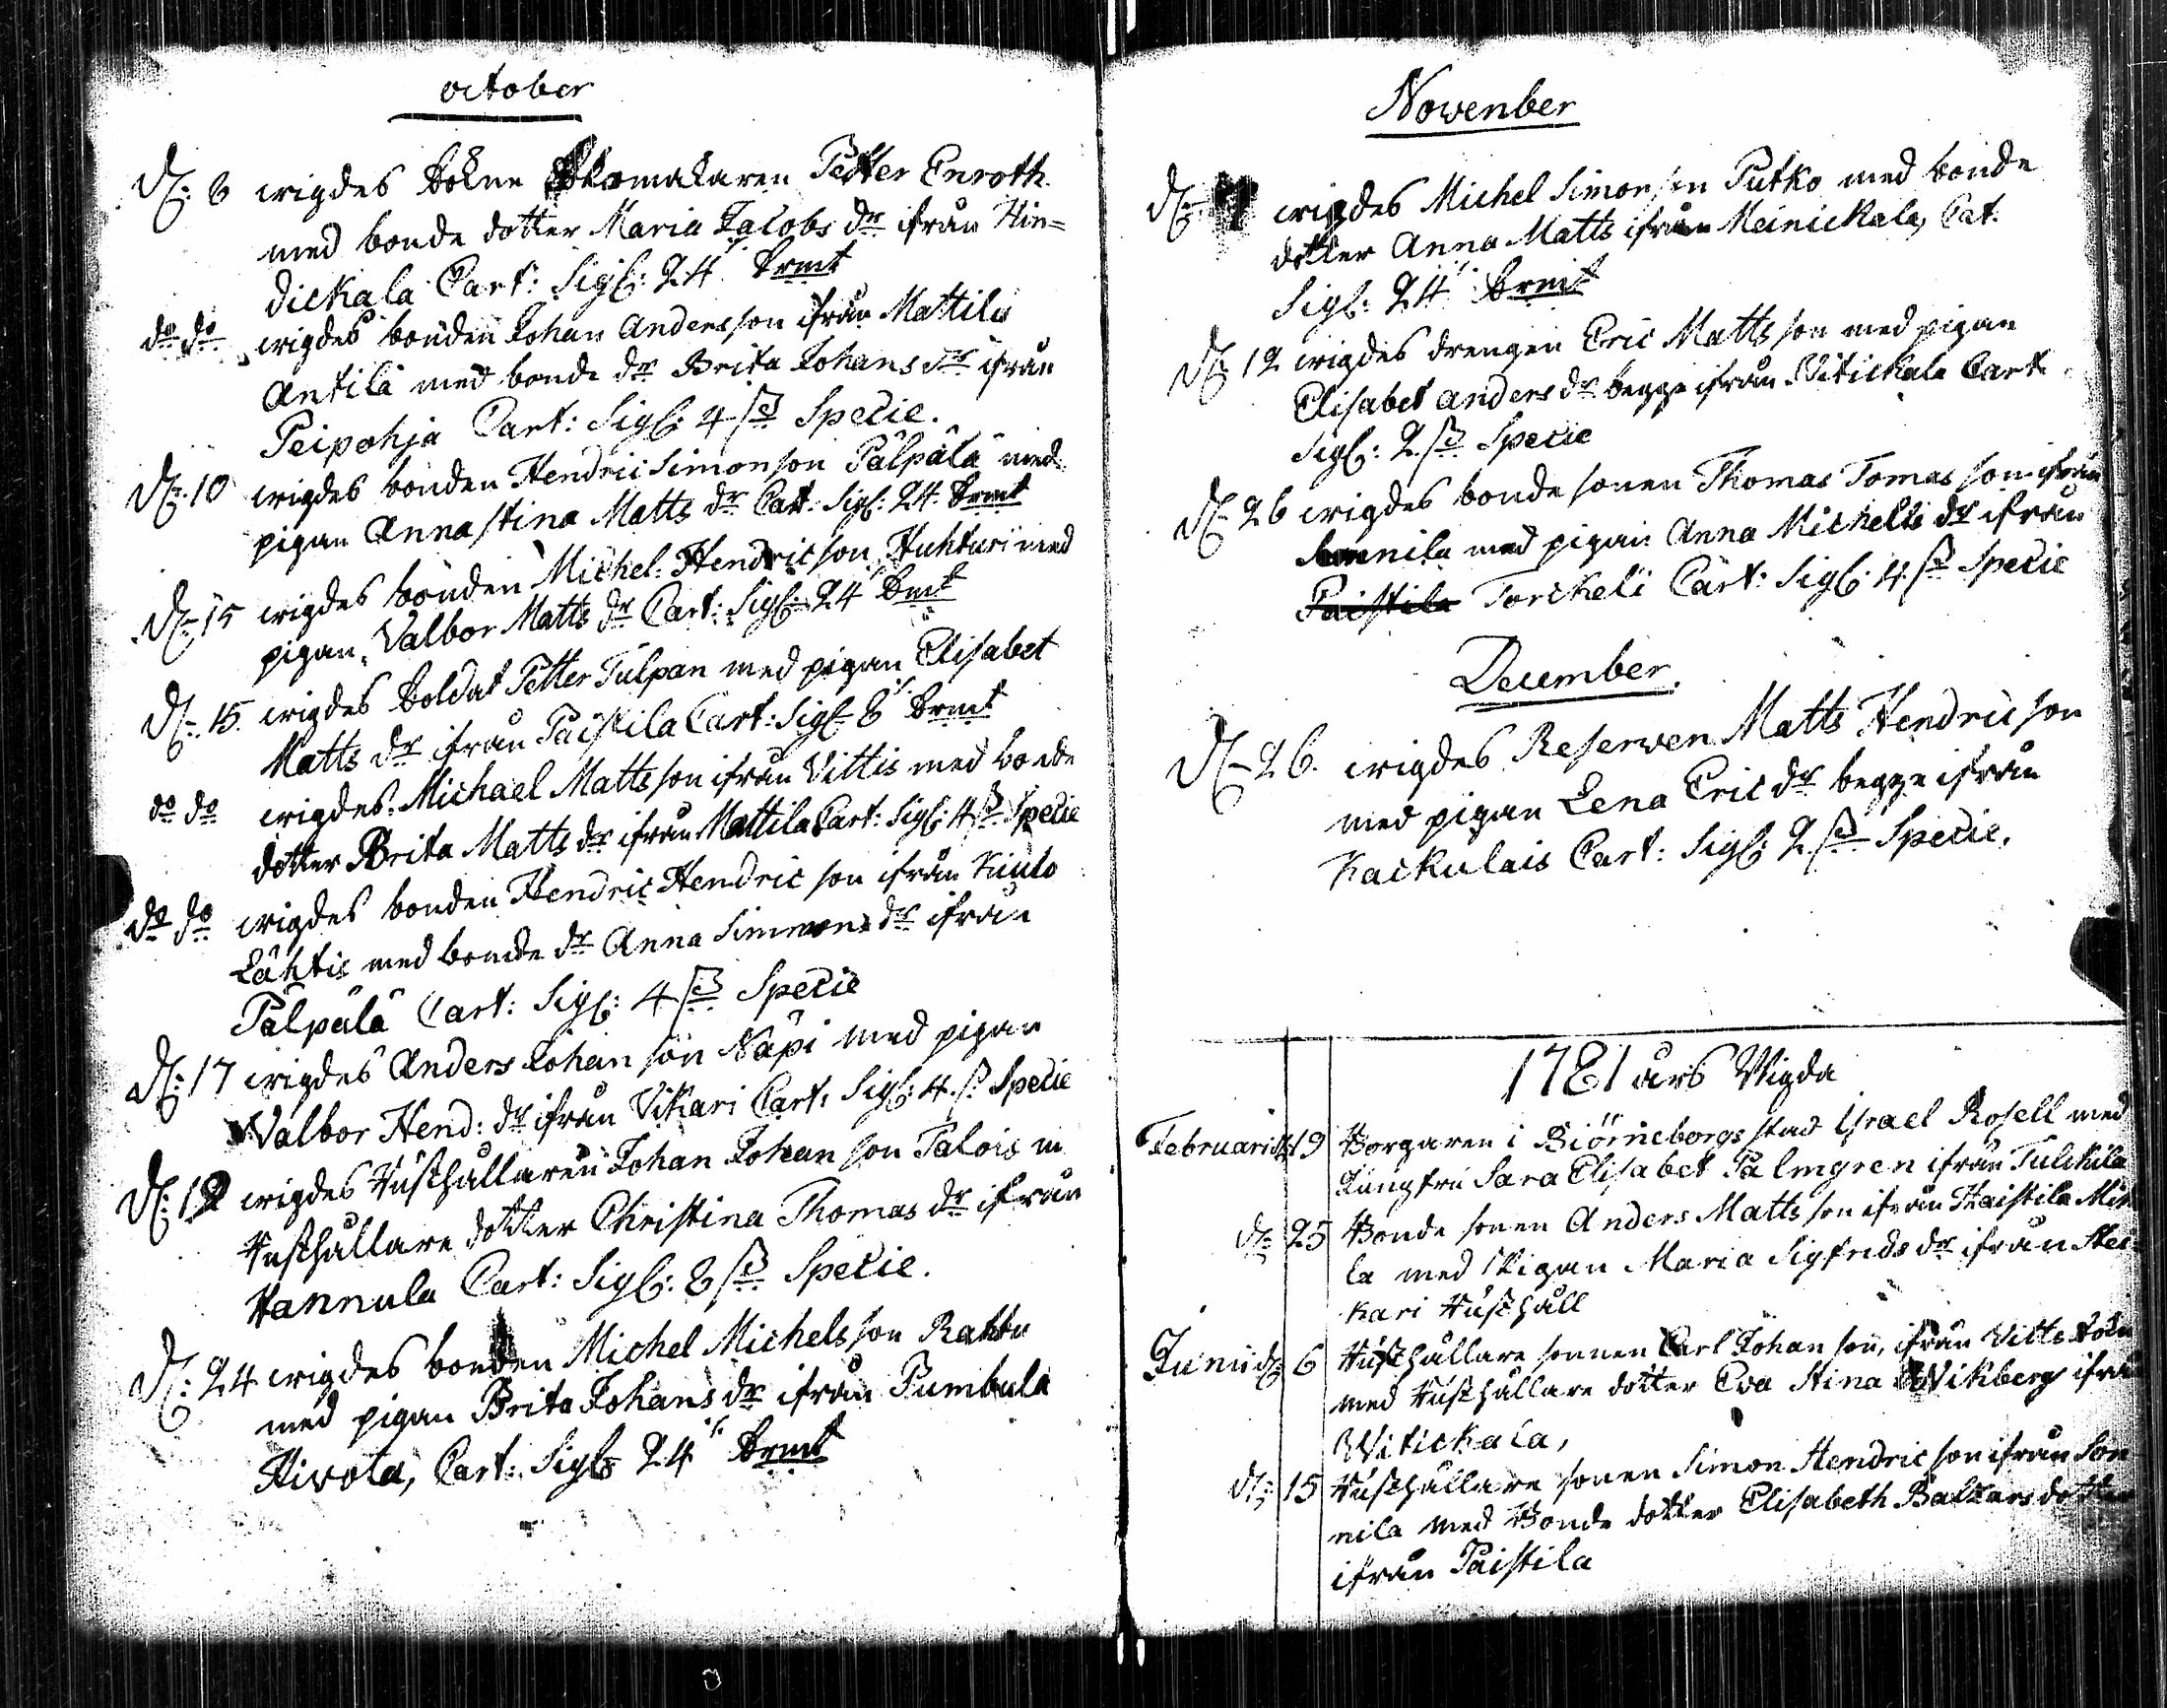 october
d: 6 wigdes Sokne Skomakaren Petter Enroth
med bonde dotter Maria Jacobs dr ifrån Hin=
dickala Cart: Sigl: 24 Srmt
do do wigdes bonden Johan Andersson ifrån Mattila
Antila med bonde dr Brita Johans dr ifrån
Peipohja Cart: Sigl: 4 Specie.
d: 10 wigdes bonden Hendric Simonson Pälpälä med
pigan Anna Stina Matts dr Cart: Sigl: 24 Srmt
d: 15 wigdes bonden Michel Hendricson Huhtari med
pigan Valbor Matts dr Cart: Sigl: 24 Smt
d: 15. wigdes Soldat Petter Tulpan med pigan Elisabet
Matts dr ifrån Paistila Cart: Sigl 8 Srmt
do do wigdes Michael Mattsson ifrån Vittis med bonde
dotter Brita Matts dr ifrån Mattila Cart: Sigl: 4 Specie
do do wigdes bonden Hendric Hendricson ifrån Kiulo
Lähtis med bonde dr Anna Simmons dr ifrån
Pälpälä Cart: Sigl: 4 Specie
d: 17 wigdes Anders Johanson Näpi med pigan
Valbor Hend: dr ifrån Vikari Cart: Sigl: 4 Specie
d: 19 wigdes Rusthållaren Johan Johanson Talois m
Rusthållare dotter Christina Thomas dr ifrån
Hannula Cart: Sigl: 8 Specie.
d: 24 wigdes bonden Michel Michelsson Rahtu
med pigan Brita Johans dr ifrån Pumbula
Hivola, Cart: Sigl 24 Srmt
Nowenber
d: wigdes Michel Simonsen Putko med bonde
dotter Anna Matts ifrån Meinickala, Cat.
Sigl: 24 Srmt
d: 12 wigdes drengen Eric Mattsson med pigan
Elisabet anders dr begge ifrån Vitickala Cart
Sigl: 2 Specie
d: 26 wigdes bonde sonen Thomas Tomasson ifrån
Sonnila med pigan Anna Michells dr ifrån
Paistila Torckeli Cart: Sigl: 4 Specie
December.
d: 26. wigdes Reserven Matts Hendricson
med pigan Lena Eric dr begge ifrån
Kackulais Cart: Sigl: 2 Specie.
1781 års Wigda
Februarii d: 19 Borgaren i Biörneborgs stad Israel Rosell med
Jungfru Sara Elisabet Palmgren ifrån Tulckila
d: 25 Bonde sonen Anders Mattsson ifrån Haistila
la med Pigan Maria Sigfrids dr ifrån
kari Rusthåll
Junii d: 6 Rusthållare sonnen Carl Johanson, ifrån Vittis Sokn
med Rusthållare dotter Eva Stina Wikberg ifrå
Witickala,
d: 15 Rusthållare sonen Simon Hendricson ifrån Son
nila med Bonde dotter Elisabeth Baltzars dotter
ifrån Paistila